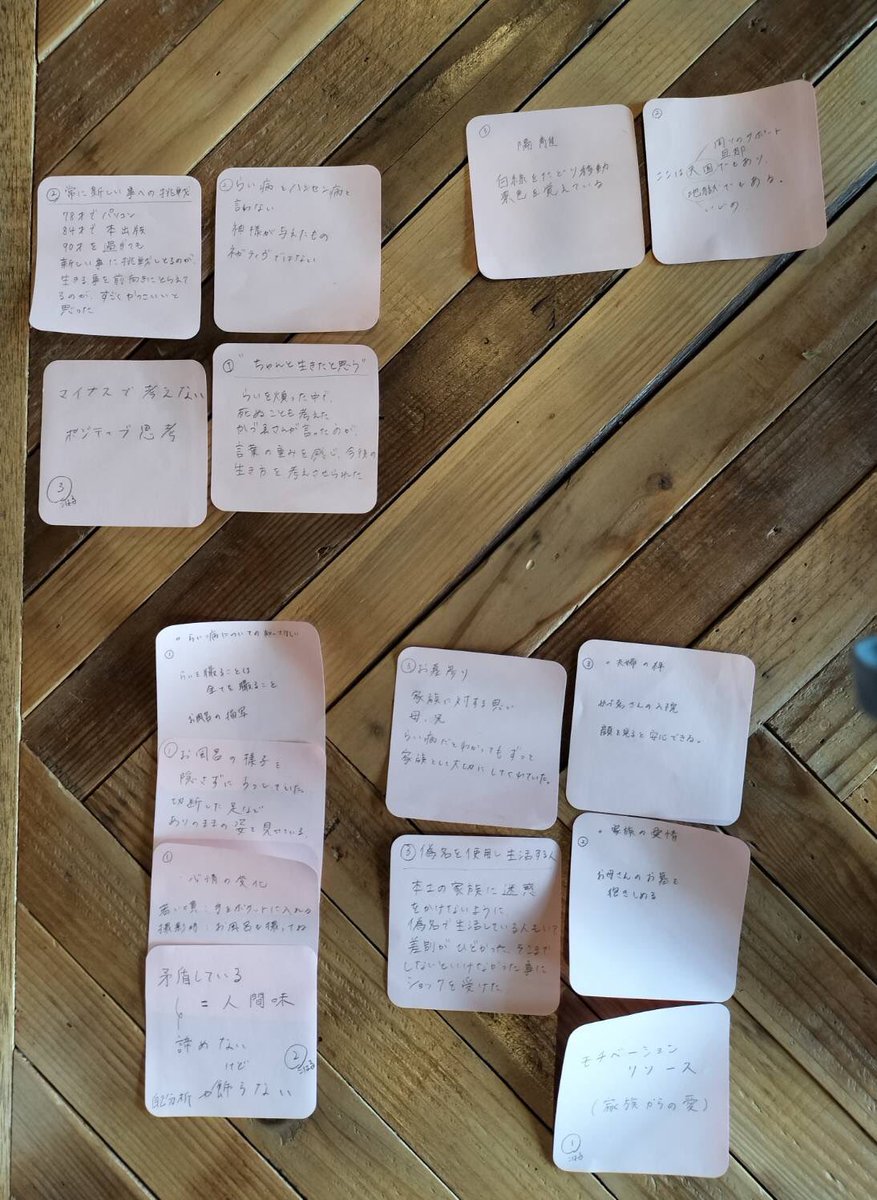 ② 常に新しい事への挑戦
78才でパソコン
84才で本出版
90才を過ぎても
新しい事に挑戦しとるのが、
生きる事を前向きにとらえて
るのが、すごくかっこいいと
思った
② らい病とハンセン病と
言わない
神様が与えたもの
ネガティヴではない
マイナスで考えない
ポジティブ思考
③
① "ちゃんと生きたと思う"
らいを煩った中で、
死ぬことも考えた
かづ系さんが言ったのが、
言葉の重みを感じ、今後の
生き方を考えさせられた
③
隔離
白線をたどり移動
景色を覚えている
②
周りのサポート
旦那
ここは天国でもあり、
地獄でもある。
いじめ
①
らいを撮ることは
全てを撮ること
お風呂の描写
① お風呂の様子を
隠さずにうつしていた。
切断した足など
ありのままの姿を見せている。
①
心情の変化
若い頃:手をポケットに入れる
撮影時:お風呂も撮ってね
矛盾している
= 人間味
諦めない
けど
飾らない
自己分析
②
③ お墓参り
家族に対する思い
母、兄
らい病だとわかってもずっと
家族として大切にしてくれていた。
③ 偽名を使用し生活する人
本土の家族に迷惑
をかけないように
偽名で生活している人もいて
差別がひどかった、そこまで
しないといけなかった事に
ショックを受けた
③ 。夫婦の絆
さんの入院
顔を見ると安心できる。
。家族の愛情
②
お母さんのお墓を
抱きしめる
モチベーション
リソース
(家族からの愛)
①